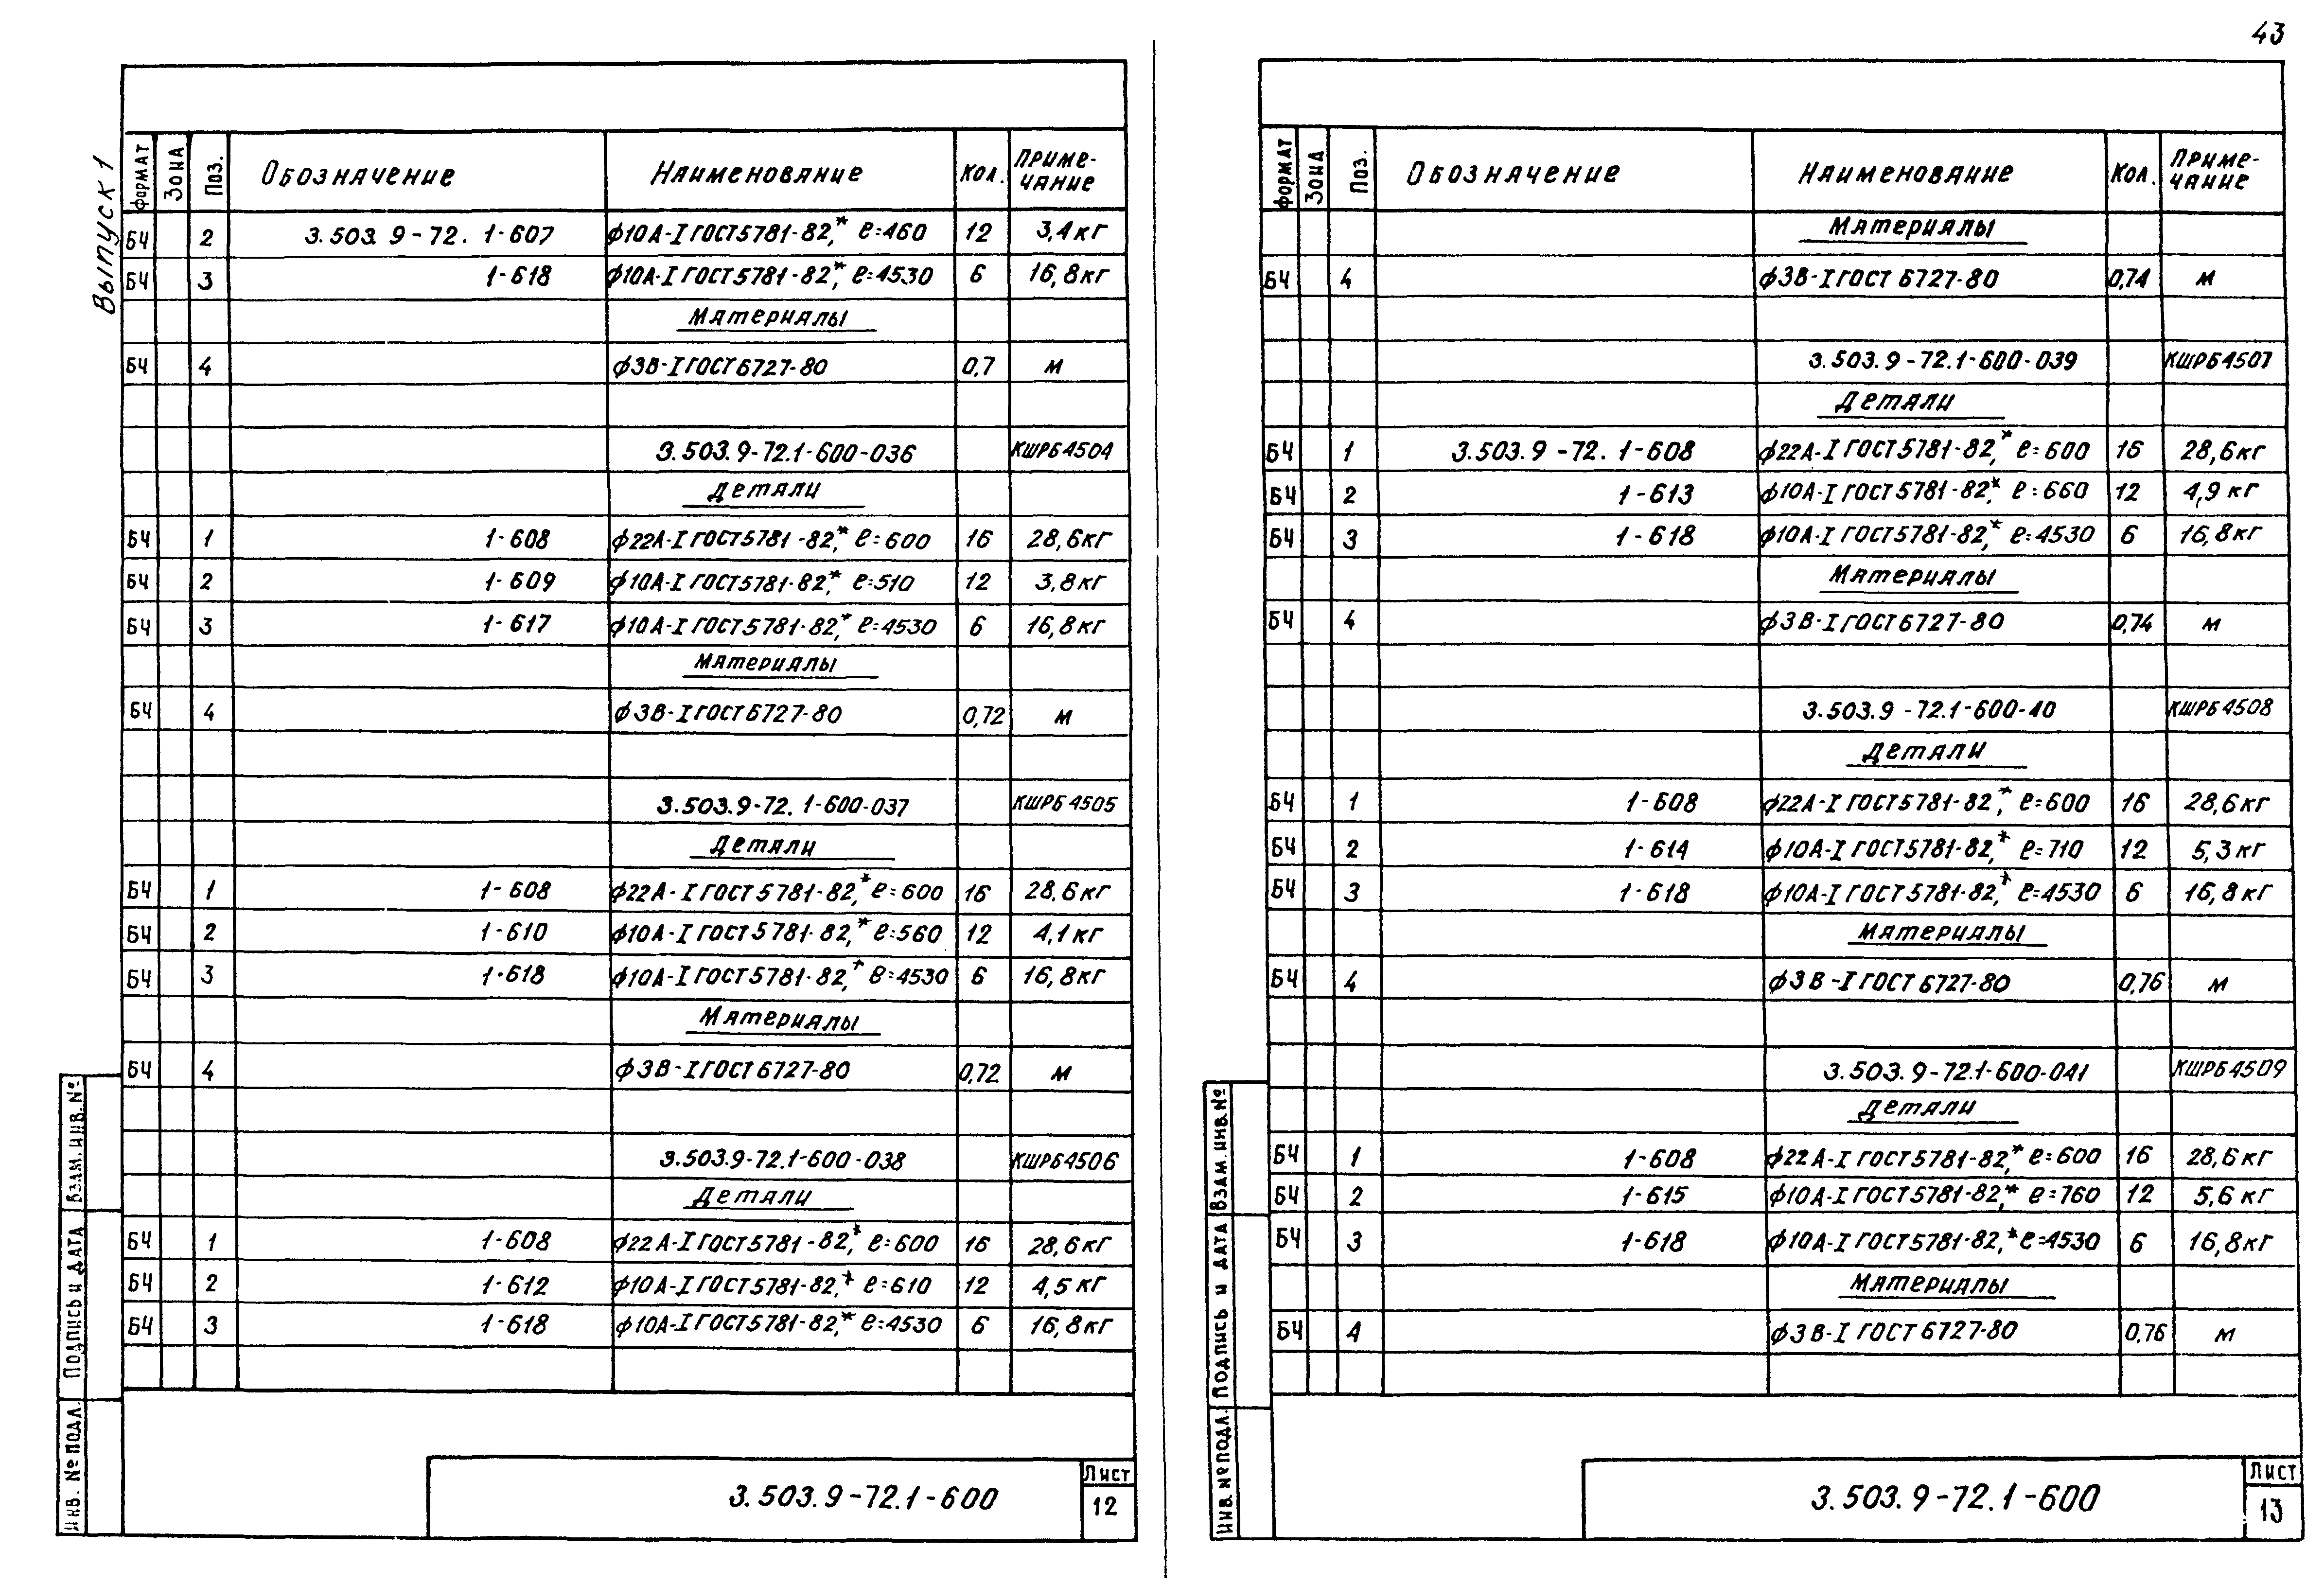 43
Выпуск 1
Формат Зона Поз. Обозначение Наименование Кол. Приме-
чание
БЧ 2 3.503.9-72.1-607 ф10А-I ГОСТ 5781-82,* ℓ=460 12 3,4кг
БЧ 3 1-618 ф10А-I ГОСТ 5781-82,* ℓ=4530 6 16,8кг
Материалы
БЧ 4 ф3В-I ГОСТ 6727-80 0,7 м
3.503.9-72.1-600-036 КШРБ4504
Детали
БЧ 1 1-608 ф22А-I ГОСТ 5781-82,* ℓ=600 16 28,6кг
БЧ 2 1-609 ф10А-I ГОСТ 5781-82,* ℓ=510 12 3,8кг
БЧ 3 1-617 ф10А-I ГОСТ 5781-82,* ℓ=4530 6 16,8кг
Материалы
БЧ 4 ф3В-I ГОСТ 6727-80 0,72 м
3.503.9-72.1-600-037 КШРБ4505
Детали
БЧ 1 1-608 ф22А-I ГОСТ 5781-82,* ℓ=600 16 28,6кг
БЧ 2 1-610 ф10А-I ГОСТ 5781-82,* ℓ=560 12 4,1кг
БЧ 3 1-618 ф10А-I ГОСТ 5781-82,* ℓ=4530 6 16,8кг
Материалы
БЧ 4 ф3В-I ГОСТ 6727-80 0,72 м
3.503.9-72.1-600-038 КШРБ4506
Детали
БЧ 1 1-608 ф22А-I ГОСТ 5781-82,* ℓ=600 16 28,6кг
БЧ 2 1-612 ф10А-I ГОСТ 5781-82,* ℓ=610 12 4,5кг
БЧ 3 1-618 ф10А-I ГОСТ 5781-82,* ℓ=4530 6 16,8кг
Инв. № подл. Подпись и дата Взам. инв. №
3.503.9-72.1-600
Лист
12
Формат Зона Поз. Обозначение Наименование Кол. Приме-
чание
Материалы
БЧ 4 ф3В-I ГОСТ 6727-80 0,74 м
3.503.9-72.1-600-039 КШРБ4507
Детали
БЧ 1 3.503.9-72.1-608 ф22А-I ГОСТ 5781-82,* ℓ=600 16 28,6кг
БЧ 2 1-613 ф10А-I ГОСТ 5781-82,* ℓ=660 12 4,9кг
БЧ 3 1-618 ф10А-I ГОСТ 5781-82,* ℓ=4530 6 16,8кг
Материалы
БЧ 4 ф3В-I ГОСТ 6727-80 0,74 м
3.503.9-72.1-600-40 КШРБ4508
Детали
БЧ 1 1-608 ф22А-I ГОСТ 5781-82,* ℓ=600 16 28,6кг
БЧ 2 1-614 ф10А-I ГОСТ 5781-82,* ℓ=710 12 5,3кг
БЧ 3 1-618 ф10А-I ГОСТ 5781-82,* ℓ=4530 6 16,8кг
Материалы
БЧ 4 ф3В-I ГОСТ 6727-80 0,76 м
3.503.9-72.1-600-041 КШРБ4509
Детали
БЧ 1 1-608 ф22А-I ГОСТ 5781-82,* ℓ=600 16 28,6кг
БЧ 2 1-615 ф10А-I ГОСТ 5781-82,* ℓ=760 12 5,6кг
БЧ 3 1-618 ф10А-I ГОСТ 5781-82,* ℓ=4530 6 16,8кг
Материалы
БЧ 4 ф3В-I ГОСТ 6727-80 0,76 м
Инв. № подл. Подпись и дата Взам. инв. №
3.503.9-72.1-600
Лист
13